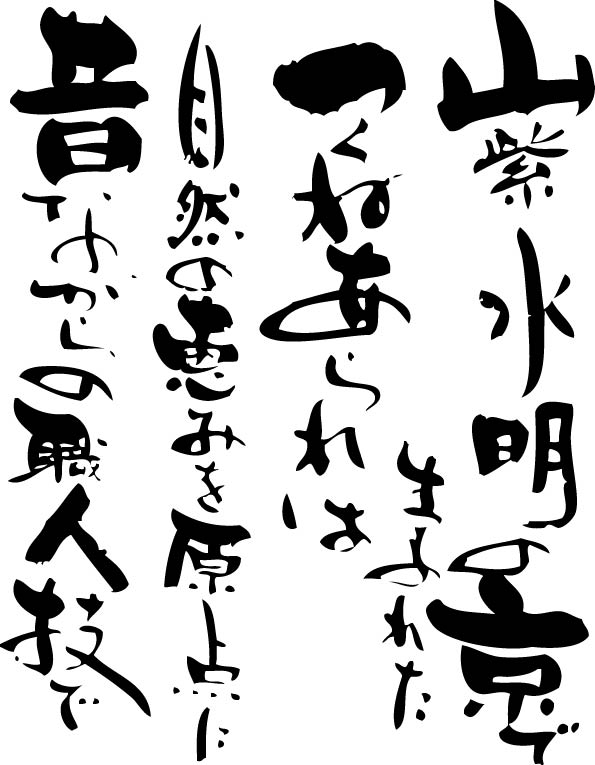 山紫水明の景で
生まれた
つくねあられは
自然の恵みを原点に
昔ながらの職人技で